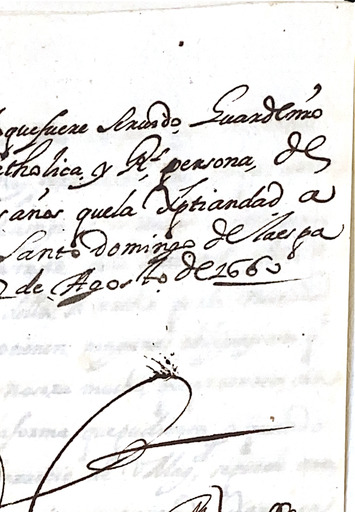 que fuere seruido, Guarde nro
catholica, y Rl. persona, de
s años que la Xptiandad a
Santo domingo de la espa
2 de, Agosto de 1660